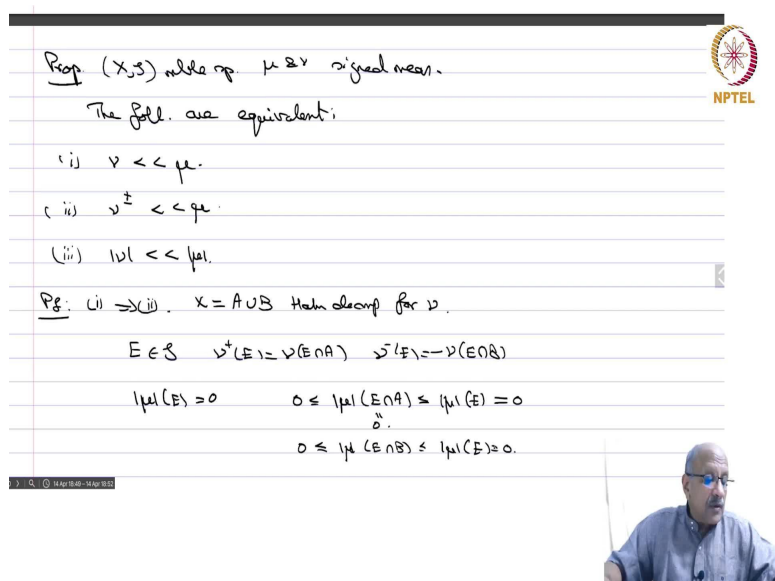 Prop. (X,S) mble sp. μ & ν signed meas.
NPTEL
The foll. are equivalent:
(i) ν << μ.
(ii) ν± << μ.
(iii) |ν| << |μ|.
Pf: (i) ⇒ (ii). X = A∪B Hahn decomp for ν.
E ∈ S ν⁺(E) = ν(E∩A) ν⁻(E) = -ν(E∩B)
|μ|(E) = 0 0 ≤ |μ|(E∩A) ≤ |μ|(E) = 0
" 0.
0 ≤ |μ|(E∩B) ≤ |μ|(E) = 0.
14 Apr 18:49 – 14 Apr 18:52